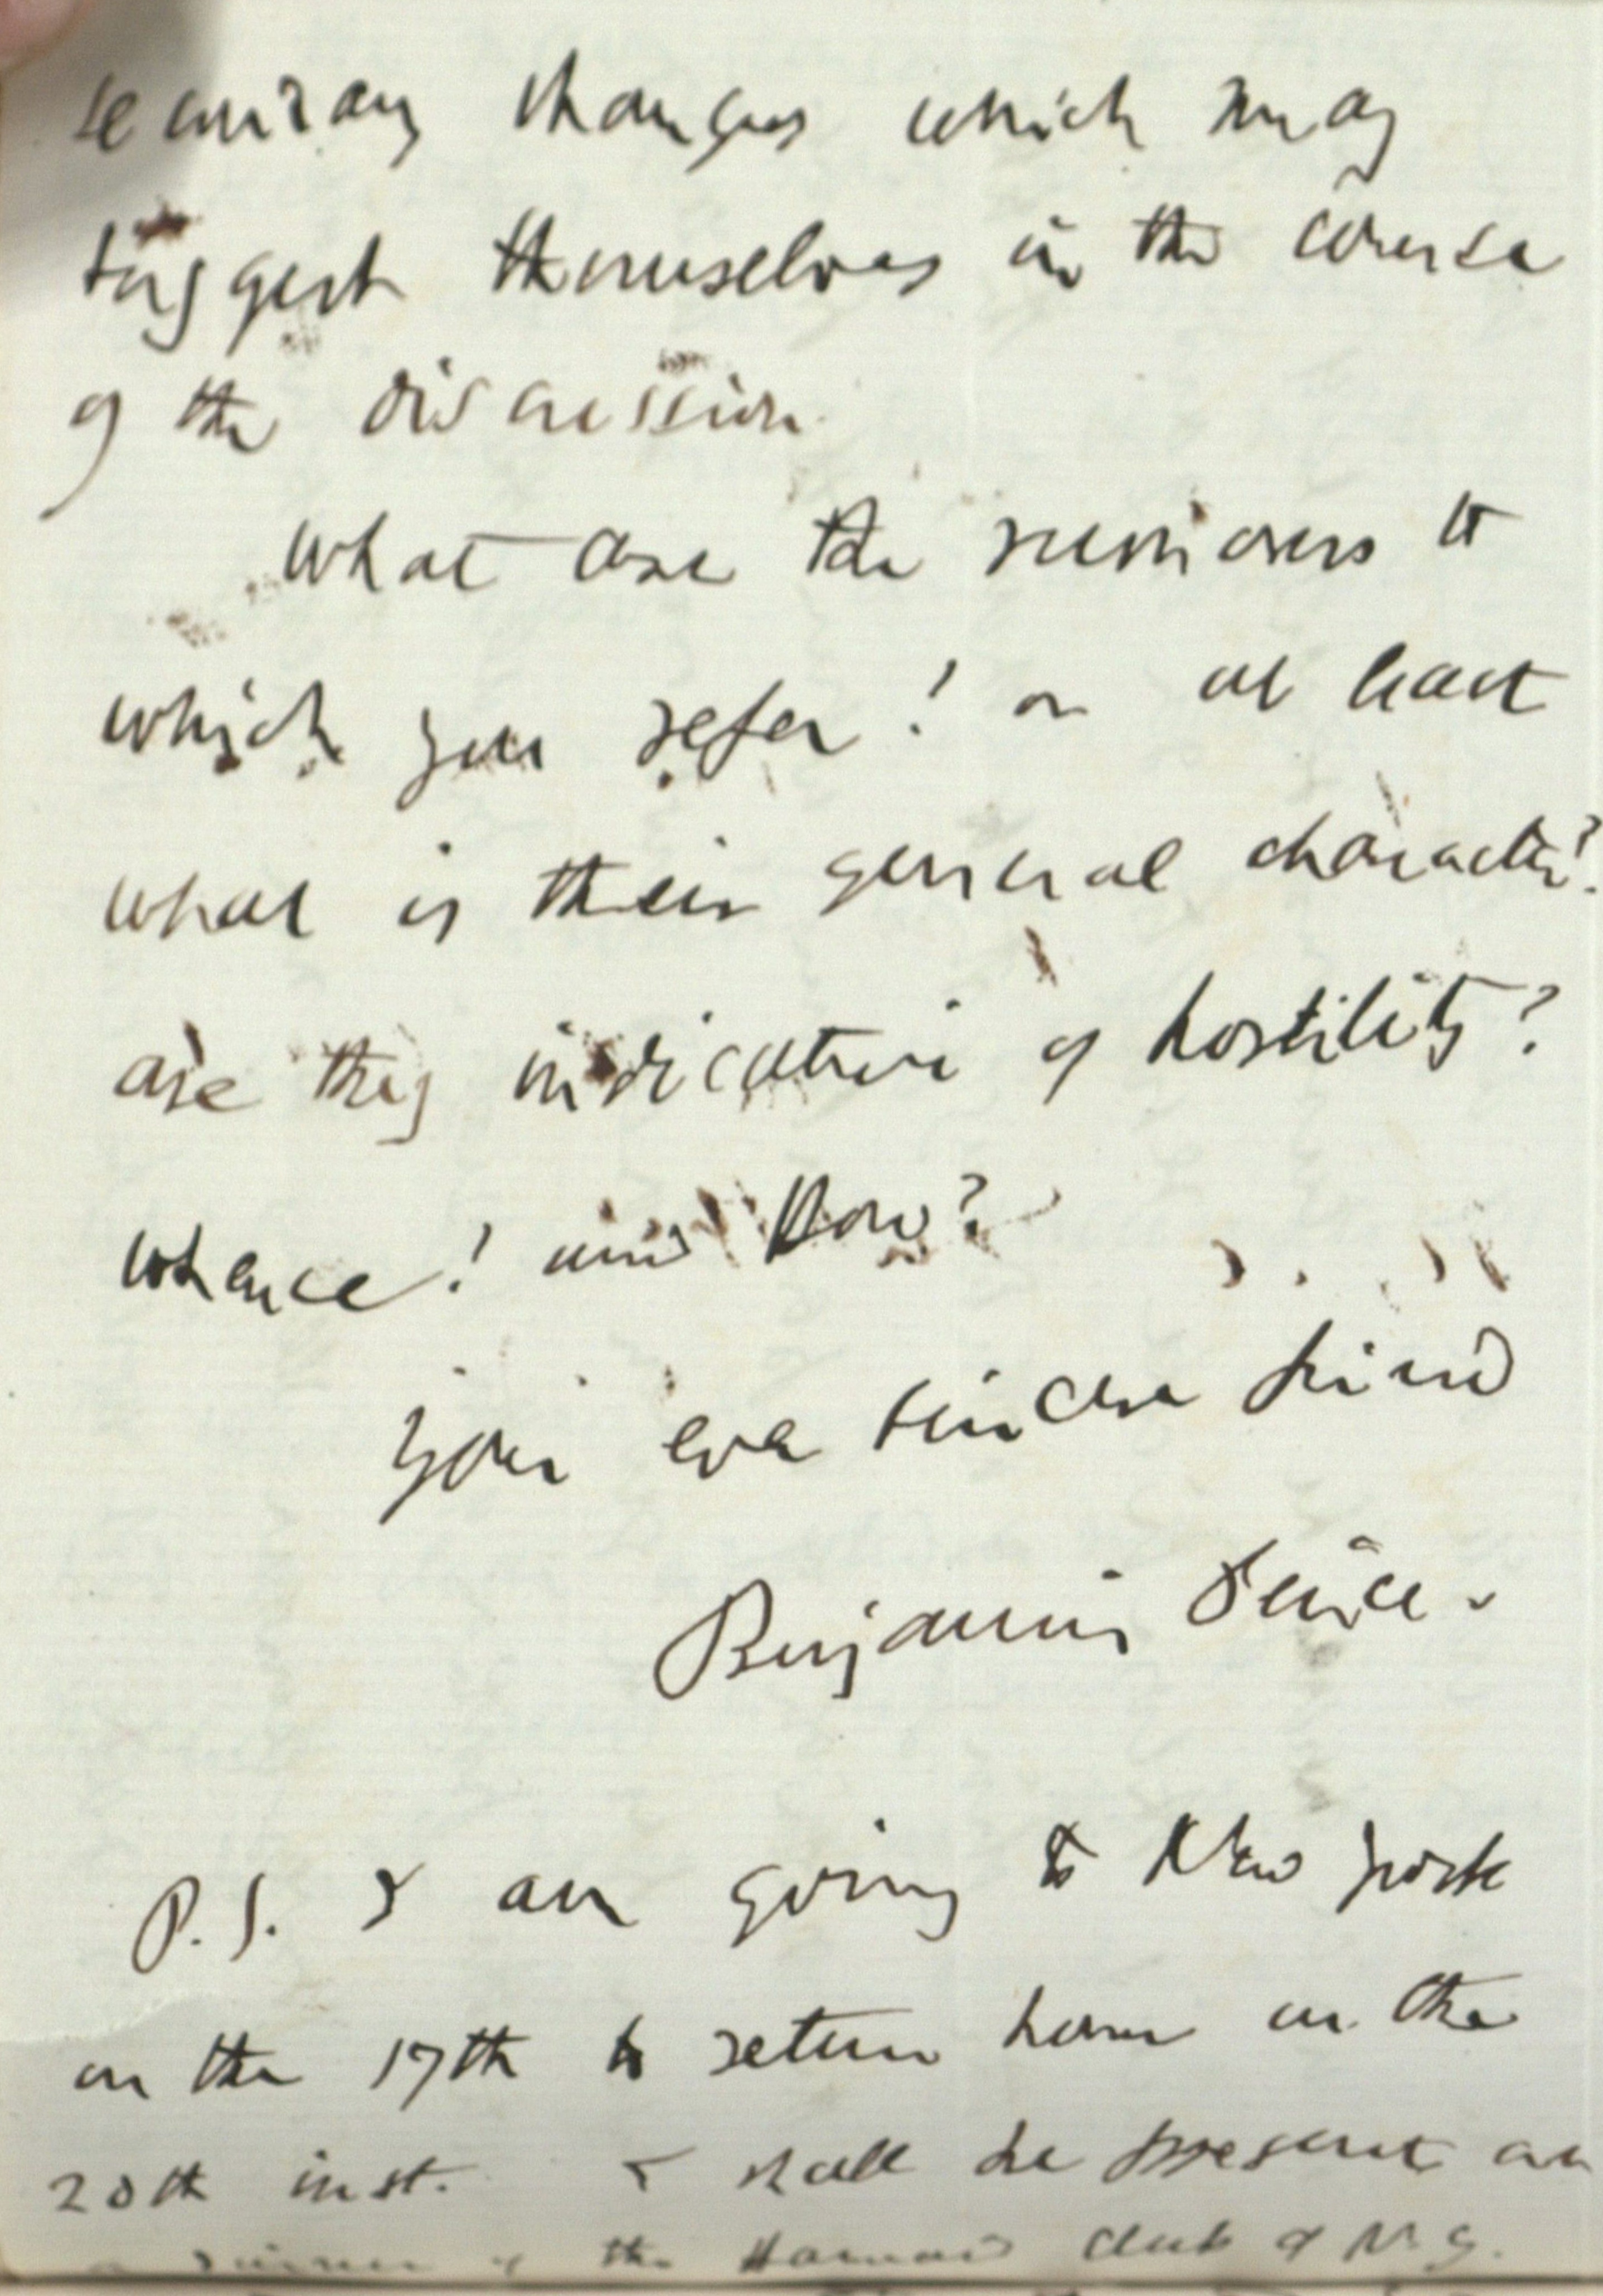 secondary changes which may
suggest themselves in the course
of the discussion.
What are the rumours to
which you refer? or at least
what is their general character?
are they indicative of hostility?
whence? and how?
Your ever sincere friend
Benjamin Peirce.
P.S. I am going to New York
on the 17th to return home on the
20th inst. I shall be present at
a dinner of the Harvard Club of N.Y.